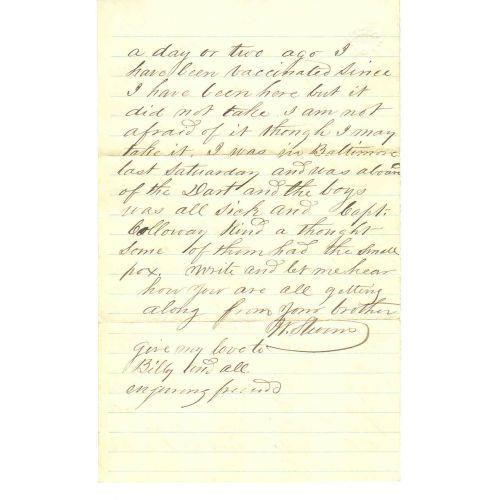 a day or two ago I
have been vaccinated since
I have been here but it
did not take I am not
afraid of it though I may
take it. I was in Baltimore
last Satuarday and was aboard
of the Dart and the boys
was all sick and Capt.
Colloway kind a thought
some of them had the small
pox. Write and let me hear
how you are all getting
along from your brother
W. Stevens
give my love to
Billy and all
enquring friends